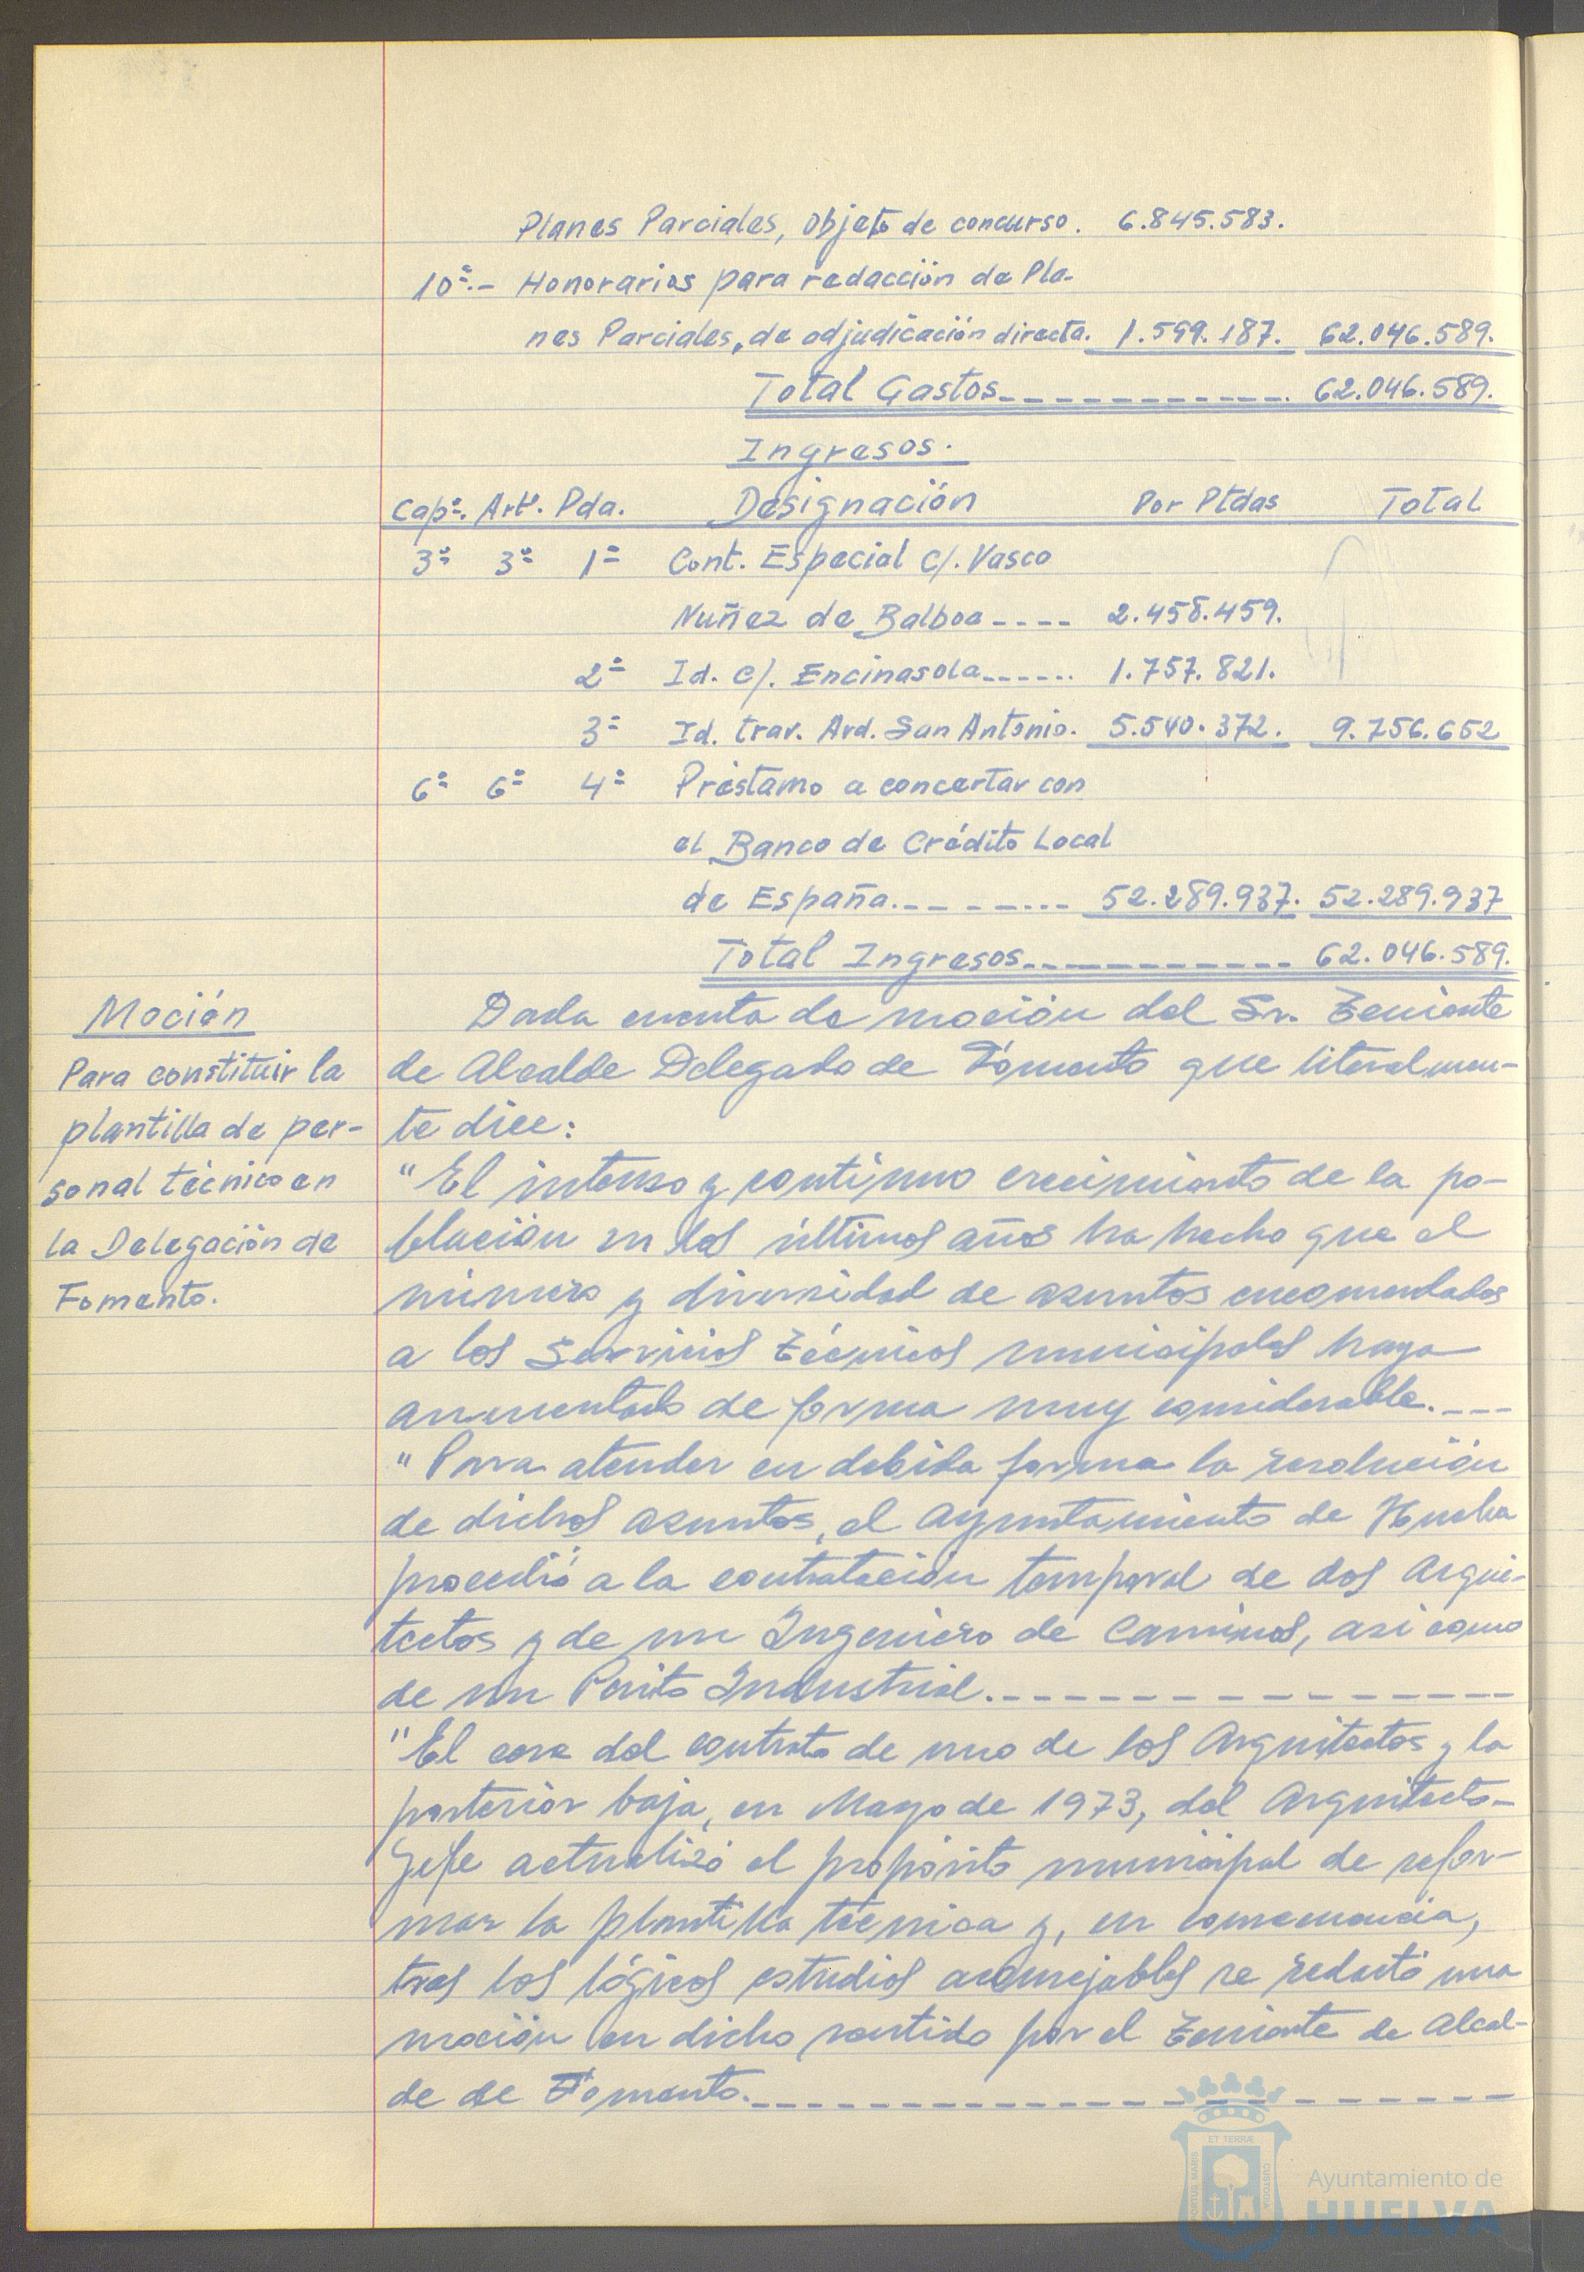 Planes Parciales, objeto de concurso. 6.845.583.
10ª.- Honorarios para redacción de Pla-
nes Parciales, de adjudicación directa. 1.599.187. 62.046.589.
Total Gastos------------. 62.046.589.
Ingresos.
Capº. Artº. Pda. Designación Por Ptdas Total
3º 3º 1ª Cont. Especial c/. Vasco
Nuñez de Balboa---- 2.458.459.
2ª Id. c/. Encinasola------ 1.757.821.
3ª Id. trav. Avd. San Antonio. 5.540.372. 9.756.652
6º 6º 4ª Préstamo a concertar con
el Banco de Crédito Local
de España.-------- 52.289.937. 52.289.937
Total Ingresos------------ 62.046.589.
Moción
Para constituir la
plantilla de per-
sonal técnico en
la Delegación de
Fomento.
Dada cuenta de moción del Sr. Teniente
de Alcalde Delegado de Fomento que literalmen-
te dice:
"El intenso y continuo crecimiento de la po-
blación en los últimos años ha hecho que el
número y diversidad de asuntos encomendados
a los Servicios Técnicos municipales haya
aumentado de forma muy considerable.---
"Para atender en debida forma la resolución
de dichos asuntos, el Ayuntamiento de Huelva
procedió a la contratación temporal de dos Arqui-
tectos y de un Ingeniero de Caminos, asi como
de un Perito Industrial.---------------
"El cese del contrato de uno de los Arquitectos y la
posterior baja, en Mayo de 1973, del Arquitecto-
Jefe actualizó el propósito municipal de refor-
mar la plantilla técnica y, en consecuencia,
tras los lógicos estudios aconsejables se redactó una
moción en dicho sentido por el Teniente de Alcal-
de de Fomento.--------------------
ET TERRÆ
PORTUS MARIS
CUSTODIA
Ayuntamiento de
HUELVA